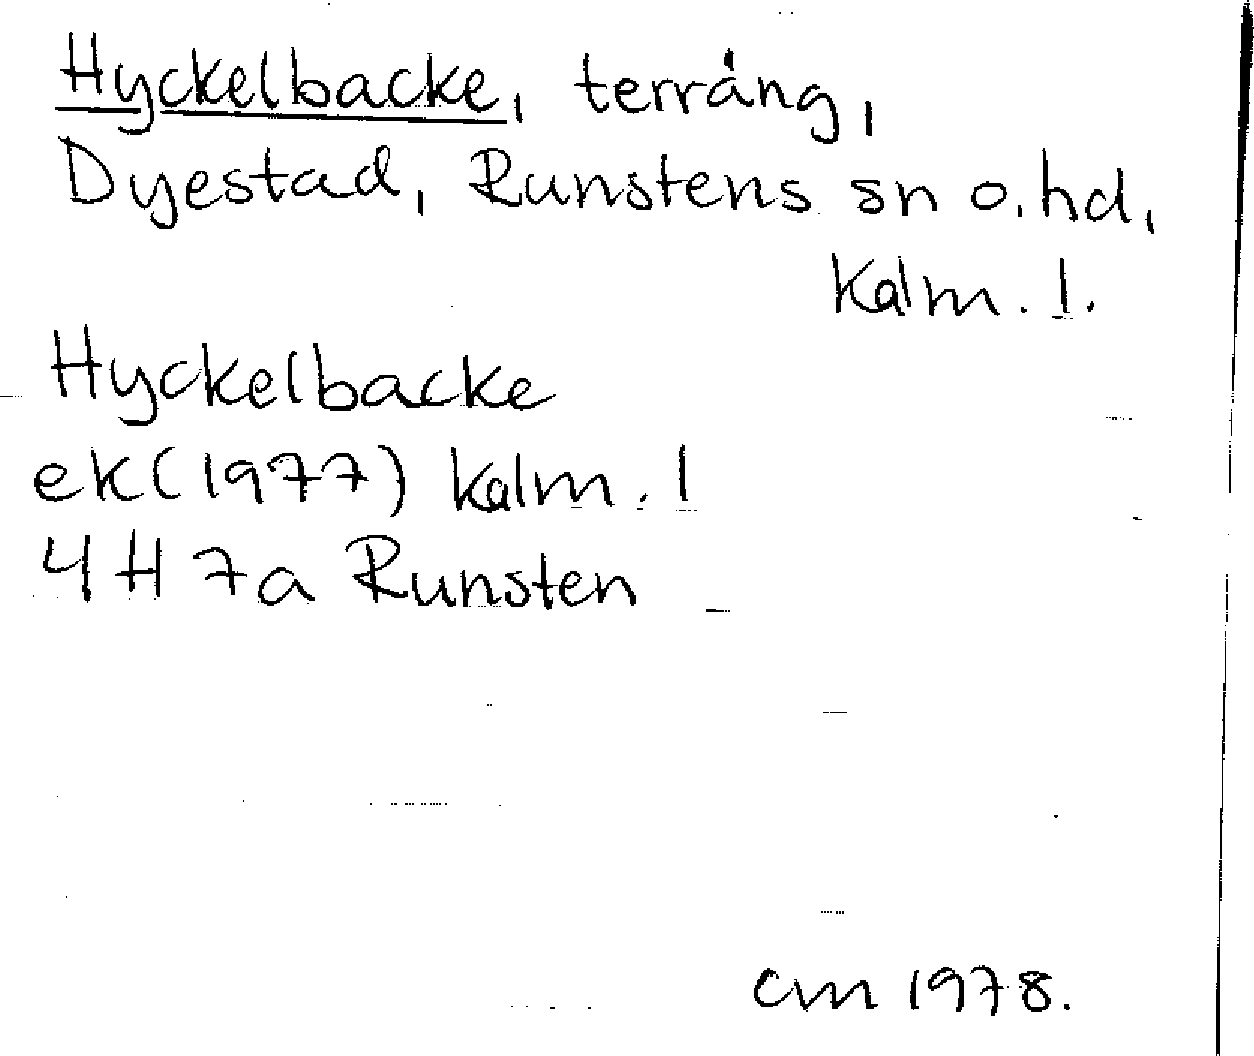 Hyckelbacke, terräng,
Dyestad, Runstens sn o. hd,
Kalm. l.
Hyckelbacke
ek (1977) Kalm. l
4H 7a Runsten
cm 1978.